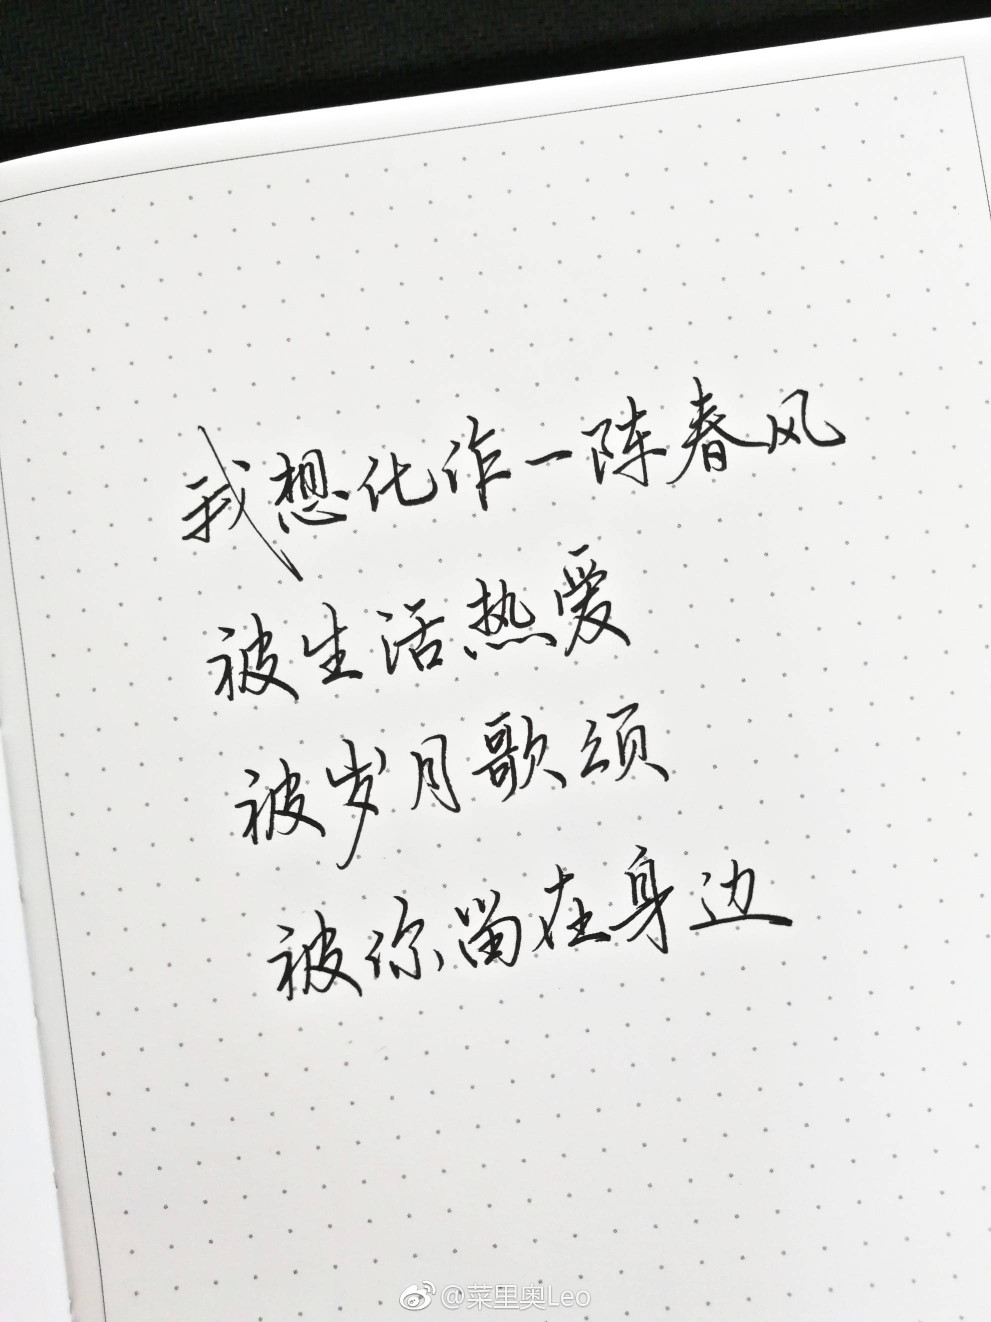 我想化作一阵春风
被生活热爱
被岁月歌颂
被你留在身边
@菜里奥Leo